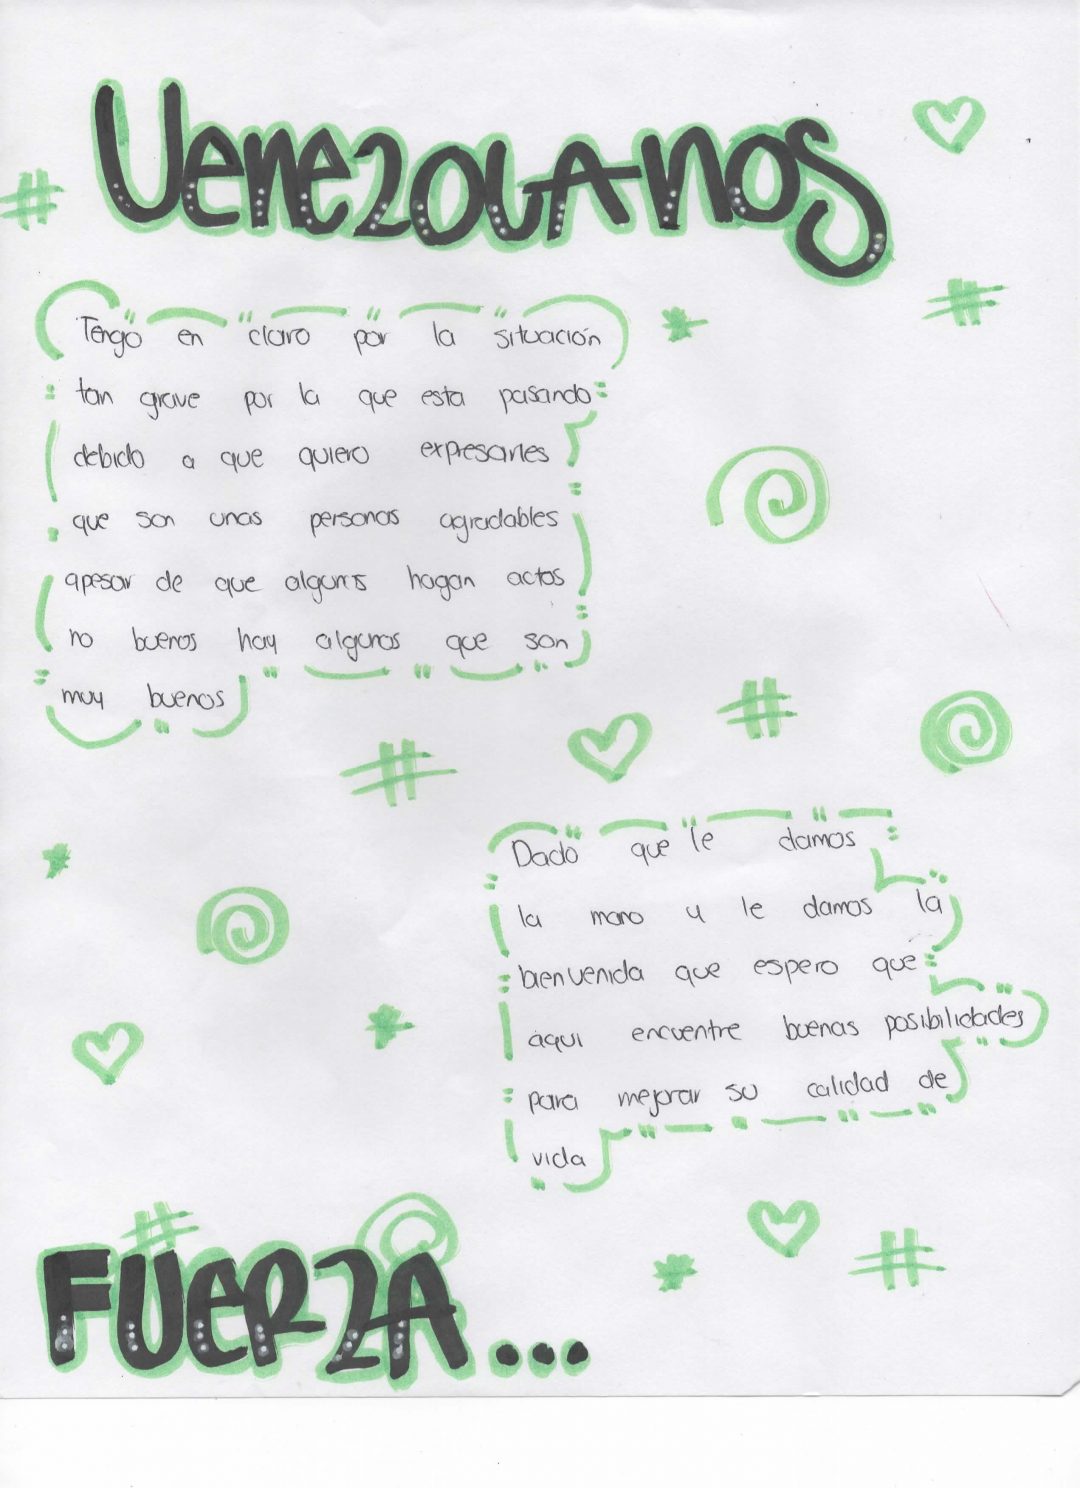 VenezolAnos
Tengo en claro por la situación
tan grave por la que esta pasando
debido a que quiero expresarles
que son unas personas agradables
apesar de que algunos hagan actos
no buenos hay algunos que son
muy buenos
Dado que le damos
la mano y le damos la
bienvenida que espero que
aqui encuentre buenas posibilidades
para mejorar su calidad de
vida
FUerZA...